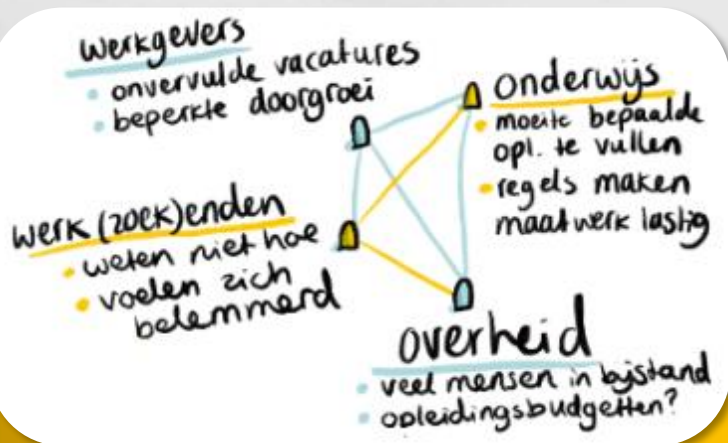 werkgevers
onvervulde vacatures
beperkte doorgroei
onderwijs
moeite bepaalde
opl. te vullen
regels maken
maatwerk lastig
werk(zoek)enden
weten niet hoe
voelen zich
belemmerd
overheid
veel mensen in bijstand
opleidingsbudgetten?